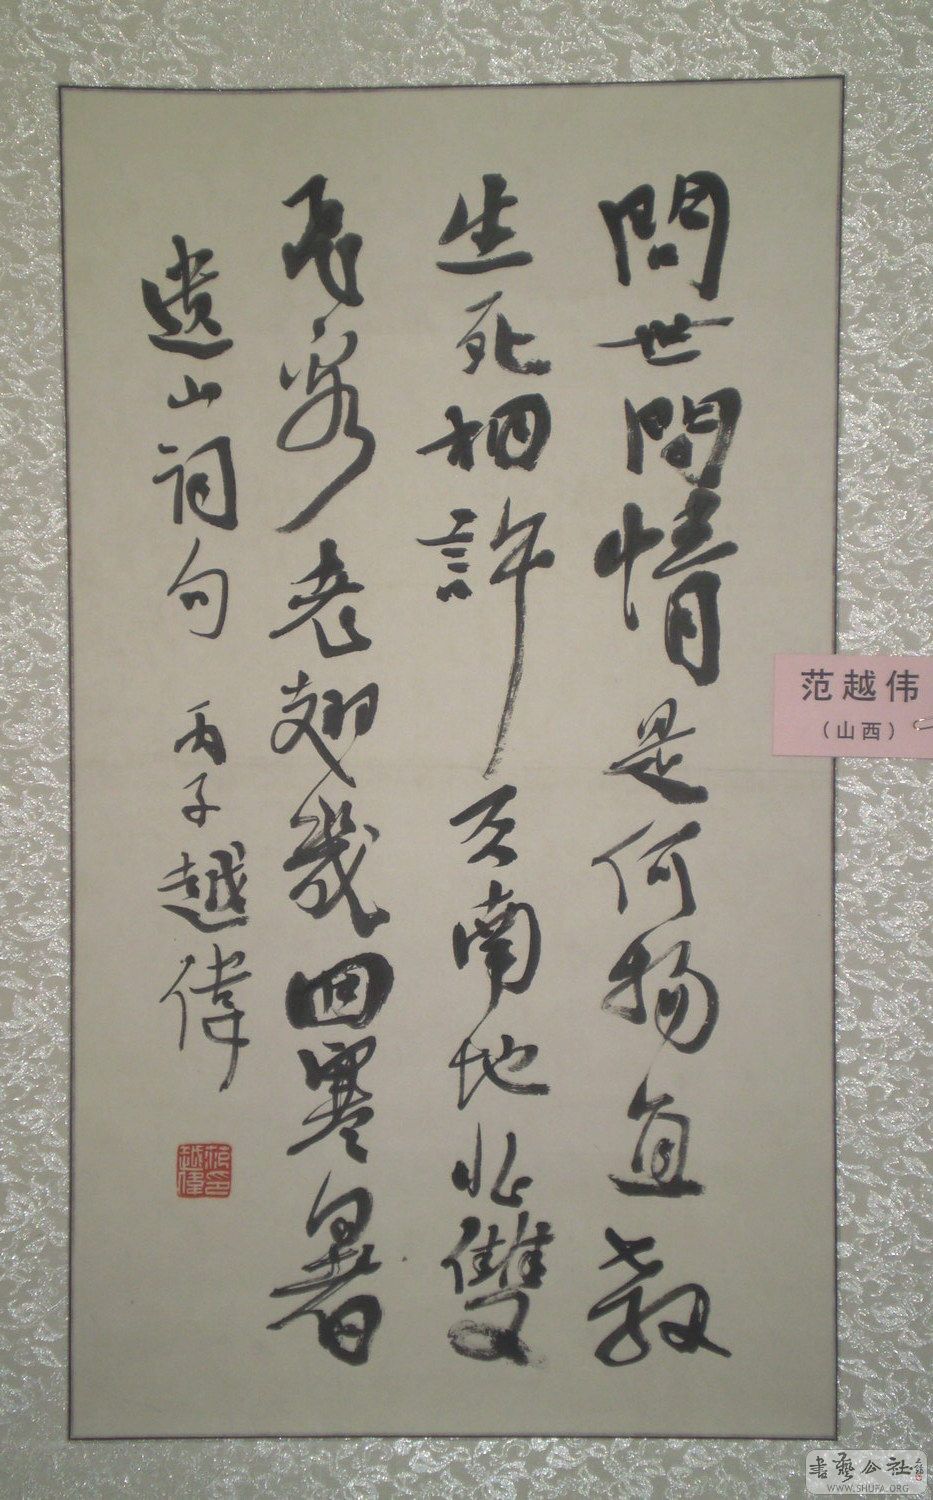 問世間情是何物直教
生死相許天南地北雙
飛客老翅幾回寒暑
遺山詞句 丙子越偉
范越伟
（山西）
書藝公社
WWW.SHUFA.ORG